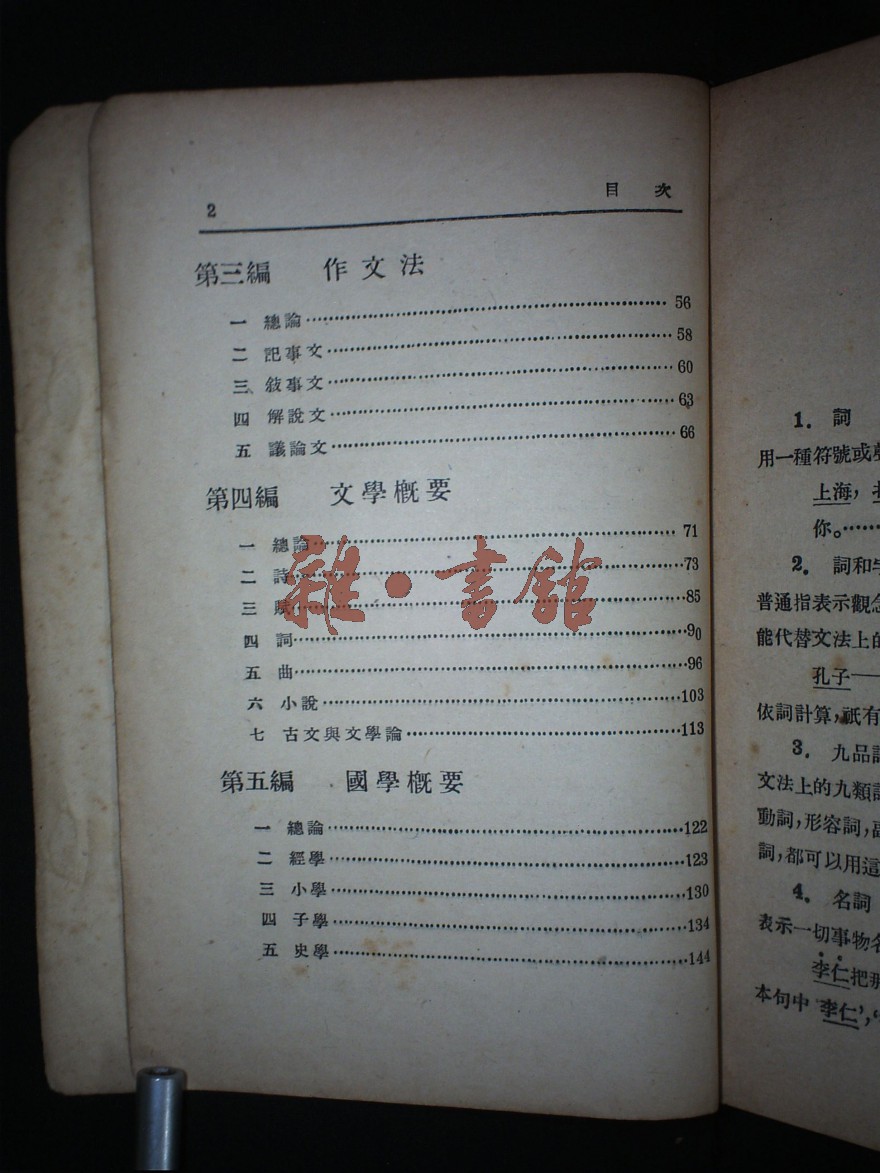 2 目次
第三編 作文法
一 總論 56
二 記事文 58
三 敍事文 60
四 解說文 63
五 議論文 66
第四編 文學概要
一 總論 71
二 詩 73
三 賦 85
四 詞 90
五 曲 96
六 小說 103
七 古文與文學論 113
第五編 國學概要
一 總論 122
二 經學 123
三 小學 130
四 子學 134
五 史學 144
雜·書館
1. 詞
用一種符號或
上海,
你。……
2. 詞和字
普通指表示觀念
能代替文法上的
孔子——
依詞計算,祇有
3. 九品詞
文法上的九類詞
動詞,形容詞,副
詞,都可以用這
4. 名詞
表示一切事物名
李仁把那
本句中'李仁','